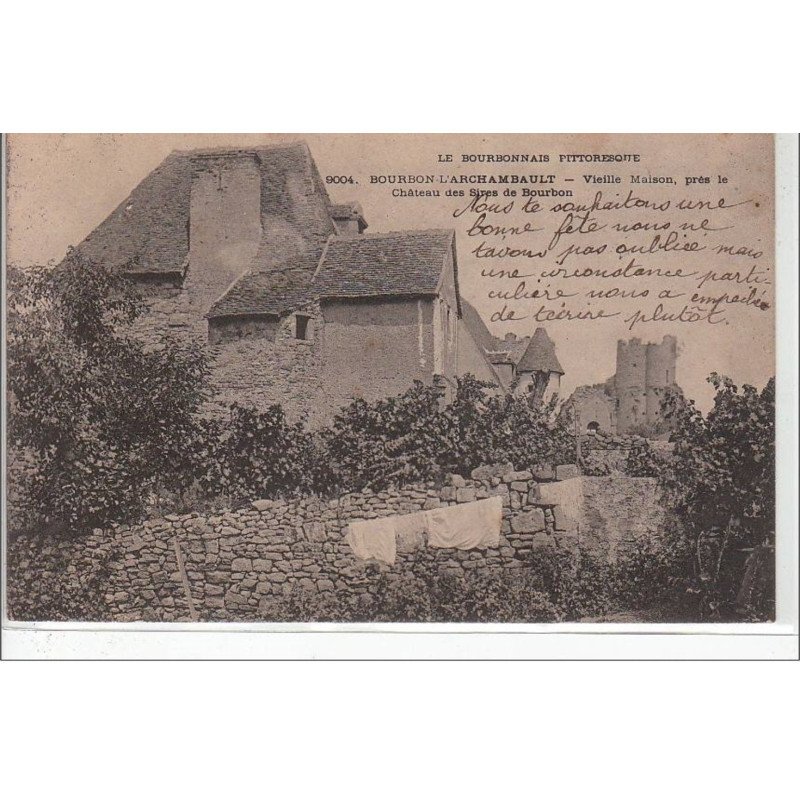 LE BOURBONNAIS PITTORESQUE
9004. BOURBON-L'ARCHAMBAULT – Vieille Maison, près le
Château des Sires de Bourbon
Nous te souhaitons une
bonne fête nous ne
t'avons pas oublice mais
une circonstance parti-
culière nous a empeché
de t'écrire plutôt.